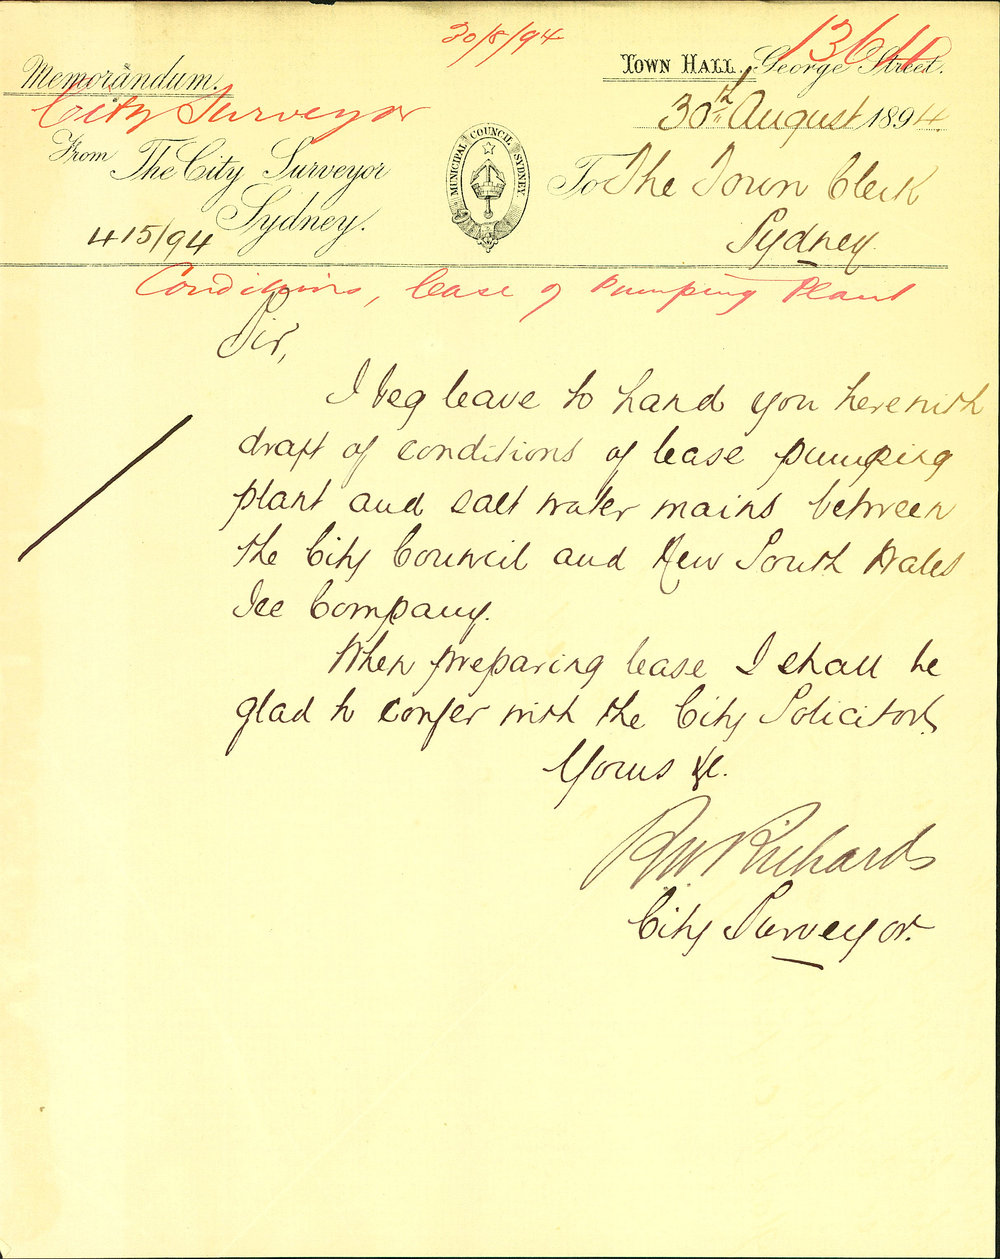 30/8/94
Memorandum.
Town Hall, George Street.
City Surveyor
30th August 1894
From The City Surveyor
Sydney.
415/94
MUNICIPAL COUNCIL SYDNEY
To The Town Clerk
Sydney
Conditions, lease of Pumping Plant
Sir,
I beg leave to hand you herewith
draft of conditions of lease pumping
plant and salt water mains between
the City Council and New South Wales
Ice Company.
When preparing lease I shall be
glad to confer with the City Solicitor.
Yours &c.
RW Richards
City Surveyor.